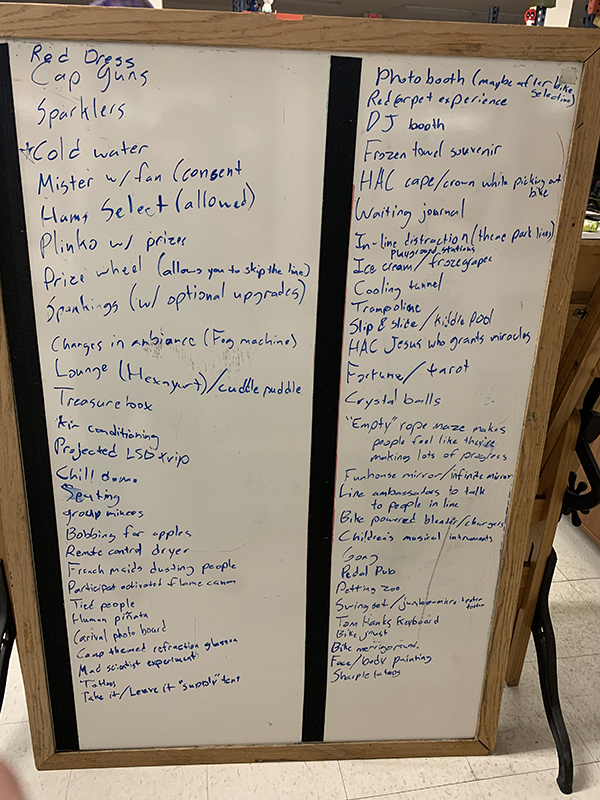 Red Dress
Cap Guns
Sparklers
*Cold water
Mister w/ fan (consent
Hams Select (allowed)
Plinko w/ prizes
Prize wheel (allows you to skip the line)
Spankings (w/ optional upgrades)
Changes in ambiance (Fog machine)
Lounge (Hexayurt)/cuddle puddle
Treasure box
Air conditioning
Projected LSD trip
Chill dome
Seating
group mixers
Bobbing for apples
Remote control dryer
French maids dusting people
Participant activated flame
Tied people
Human piñata
Carival photo board
Camp themed refraction glasses
Mad scientist experiment
Tattoos
Take it/Leave it "supply" tent
Photo booth (maybe after bike
selection)
Red carpet experience
DJ booth
Frozen towel souvenir
HAC cape/crown while picking out
bike
Waiting journal
In-line distraction (theme park lines)
playground stations
Ice cream/frozegrapes
Cooling tunnel
Trampoline
Slip & slide/kiddie pool
HAC Jesus who grants miracles
Fortune/tarot
Crystal balls
"Empty" rope maze makes
people feel like they're
making lots of progress
Funhouse mirror/infinite mirror
Line ambassadors to talk
to people in line
Bike powered blender/chargers
Children's musical instruments
Gong
Pedal Pub
Petting zoo
Swing set/jumbo+micro teeter
totter
Tom Hanks Keyboard
Bike joust
Bike merrigoround
Face/body painting
Sharpie tattoos